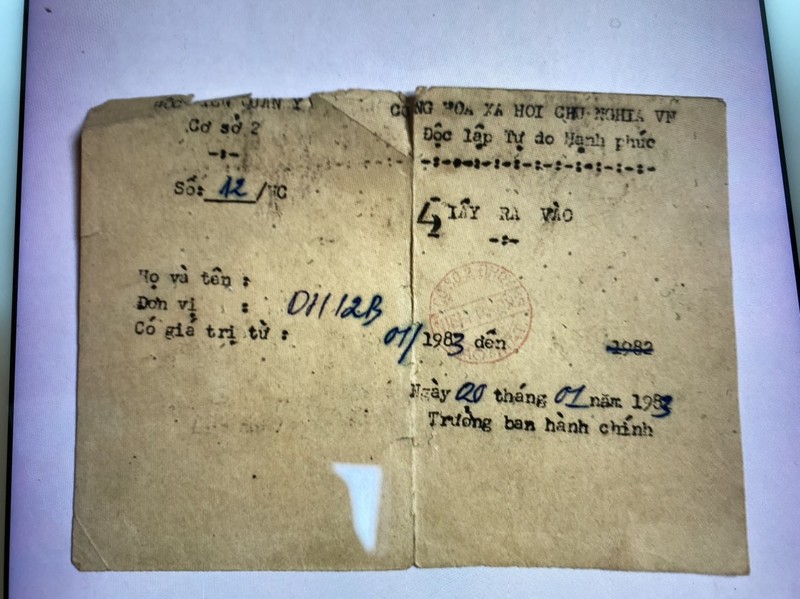 HỌC VIỆN QUÂN Y
Cơ sở 2
-:-
Số: 12/HC
Họ và tên :
Đơn vị : DH12B
Có giá trị từ :
CỘNG HÒA XÃ HỘI CHỦ NGHĨA VN
Độc lập Tự do Hạnh phúc
-:-:-:-:-:-:-:-:-:-:-
GIẤY RA VÀO
-:-
01/1983 đến 1982
Ngày 20 tháng 01 năm 1983
Trưởng ban hành chính